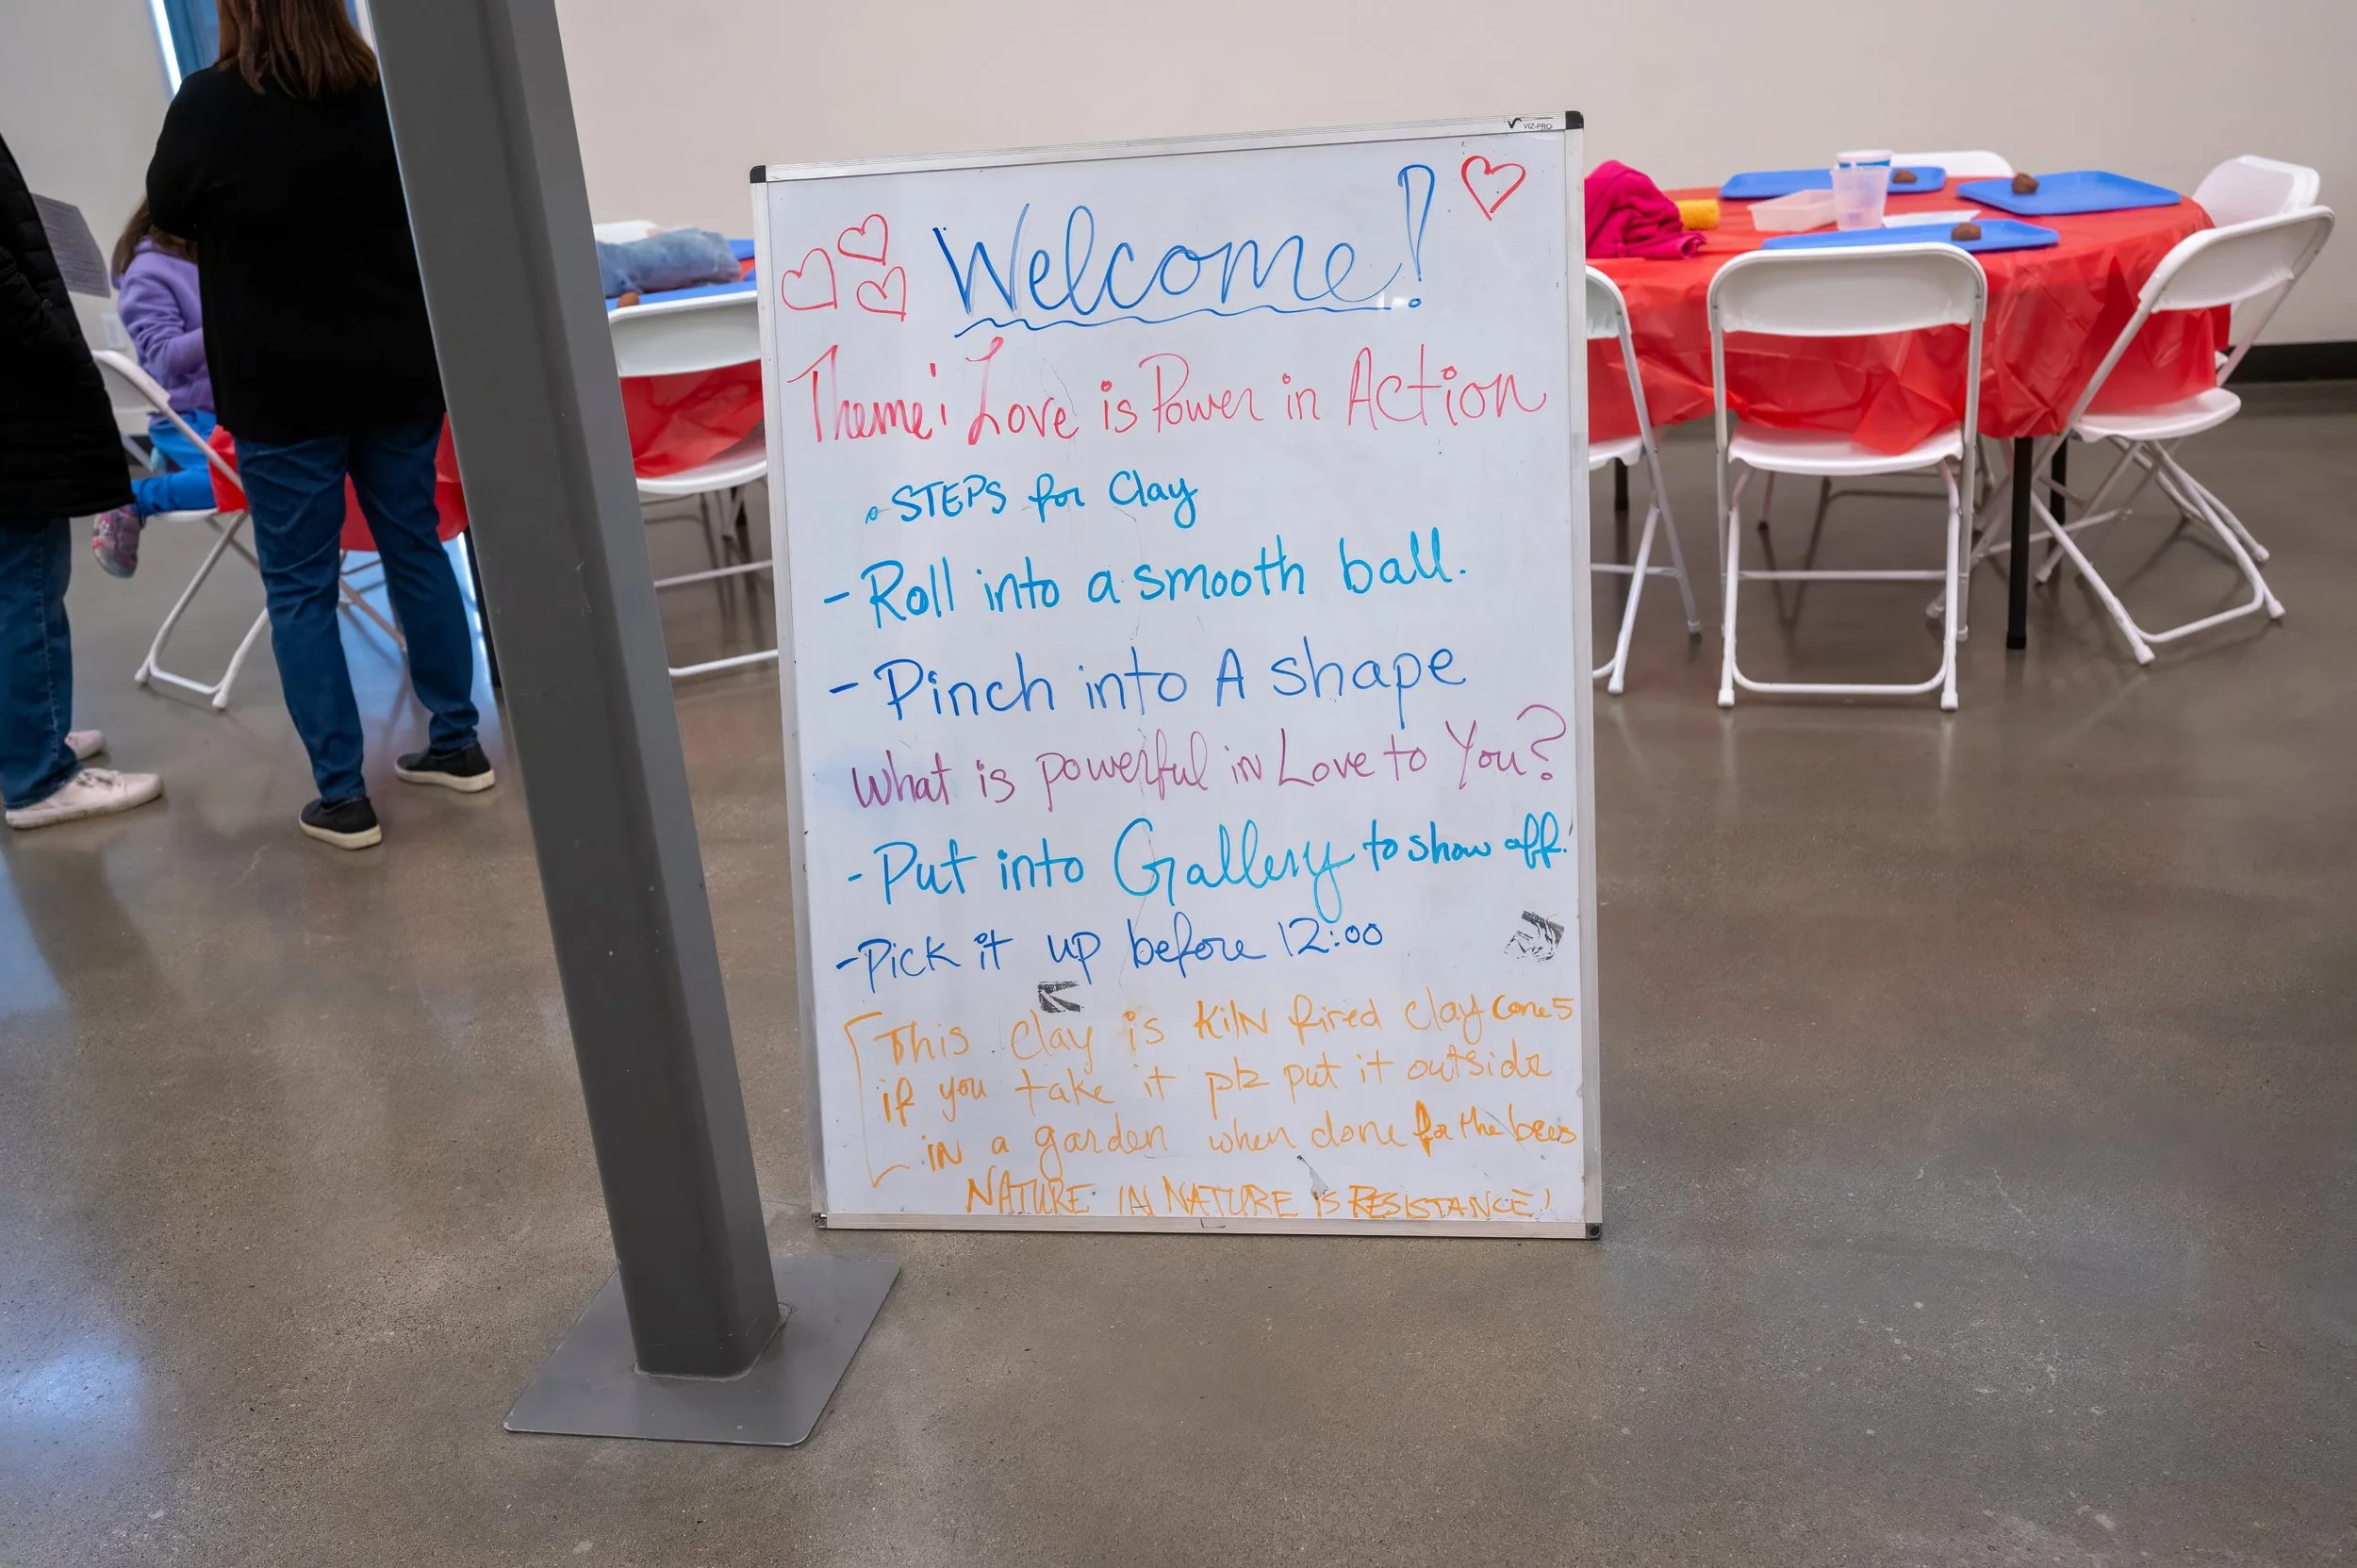 VIZ-PRO
Welcome!
Theme: Love is Power in Action
STEPS for Clay
- Roll into a smooth ball.
- Pinch into A shape
What is powerful in Love to You?
- Put into Gallery to show off!
- Pick it up before 12:00
This clay is KilN fired clay Cone 5
if you take it plz put it outside
iN a garden when done for the bees
NATURE IN NATURE iS RESISTANCE!